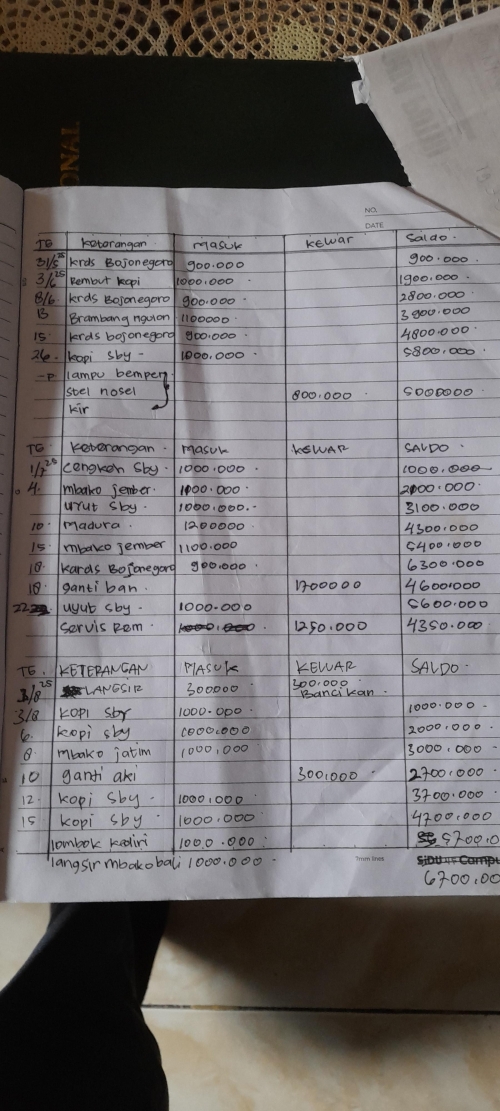 ONAL
NO.
DATE
TG Keterangan MASUK KELUAR Saldo.
31/5 25 krds Bojonegoro 900.000 900.000.
3/6 25 Rembut kopi 1000.000 1900.000.
8/6. krds Bojonegoro 900.000 2800.000.
13 Brambang 1100000 3900.000.
15. krds bojonegoro 900.000 4800.000
26. kopi sby - 1000.000 5800.000.
lampu bemper
stel nosel 800.000 5000000
kir
TG. Keterangan. Masuk KELUAR SALDO.
1/7 25 cengkeh Sby. 1000.000. 1000.000
4. mbako jember. 1000.000. 2000.000.
uyut Sby. 1000.000.- 3100.000
10. Madura. 1200000 4300.000
15. mbako jember 1100.000 5400.000
18. kards Bojonegoro 900.000 6300.000
18. ganti ban. 1700000 4600.000
22 uyut sby. 1000.000 5600.000
Servis Rem. 1250.000 4350.000
TG. KETERANGAN MASUK KELUAR SALDO.
/8 25 LANGSIR 300000 300.000
Bancikan.
3/8 kopi sby 1000.000 1000.000.
6. kopi sby 1000.000 2000.000
8. mbako jatim 1000.000 3000.000
10 ganti aki 300.000 2700.000
12. kopi sby. 1000.000 3700.000
15 kopi sby. 1000.000 4700.000
lombok kediri 1000.000 5700.0
langsir mbako bali 1000.000. 6700.00